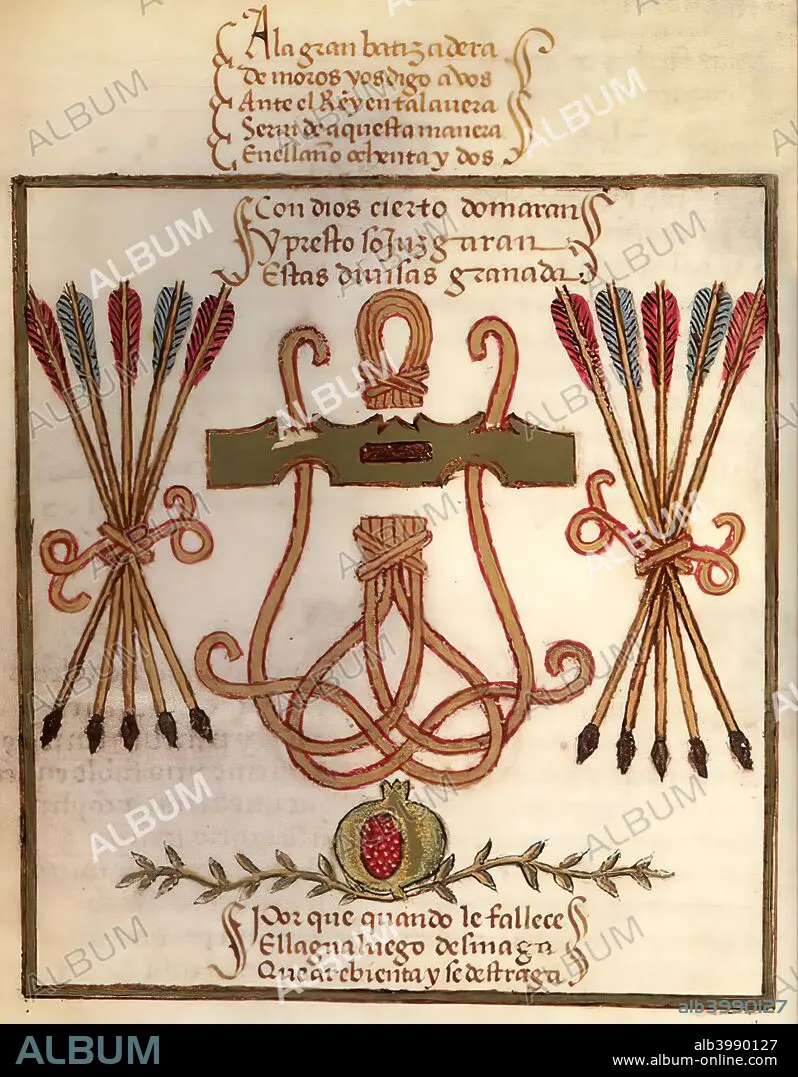 A la gran batizadera
de moros vos digo a vos
Ante el Rey en talavera
Serui de aquesta manera
En el año ochenta y dos
Con dios cierto domaran
y presto sojuzgaran
Estas diuisas granada
Por que quando le fallece
El lagua luego desmaga
Que arebienta y se destraga
ALBUM
alb3990127
ALBUM
alb3990127
www.album-online.com